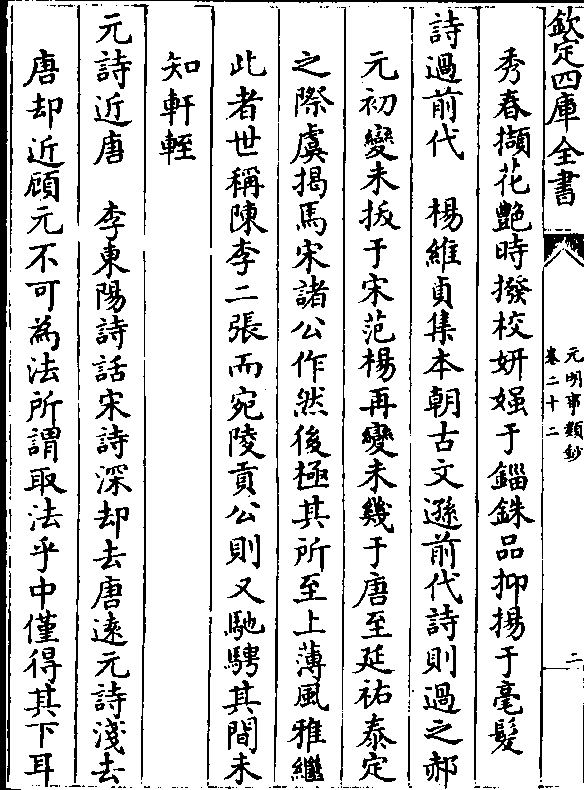 欽定四庫全書
元明事類鈔
卷二十二
二
秀春擷花艷時撥校妍媸于錙銖品抑揚于毫髮
詩過前代　楊維貞集本朝古文遜前代詩則過之郝
元初變未拔于宋范楊再變未幾于唐至延祐泰定
之際虞揭馬宋諸公作然後極其所至上薄風雅繼
此者世稱陳李二張而宛陵貢公則又馳騁其間未
知軒輊
元詩近唐　李東陽詩話宋詩深却去唐遠元詩淺去
唐却近顧元不可為法所謂取法乎中僅得其下耳